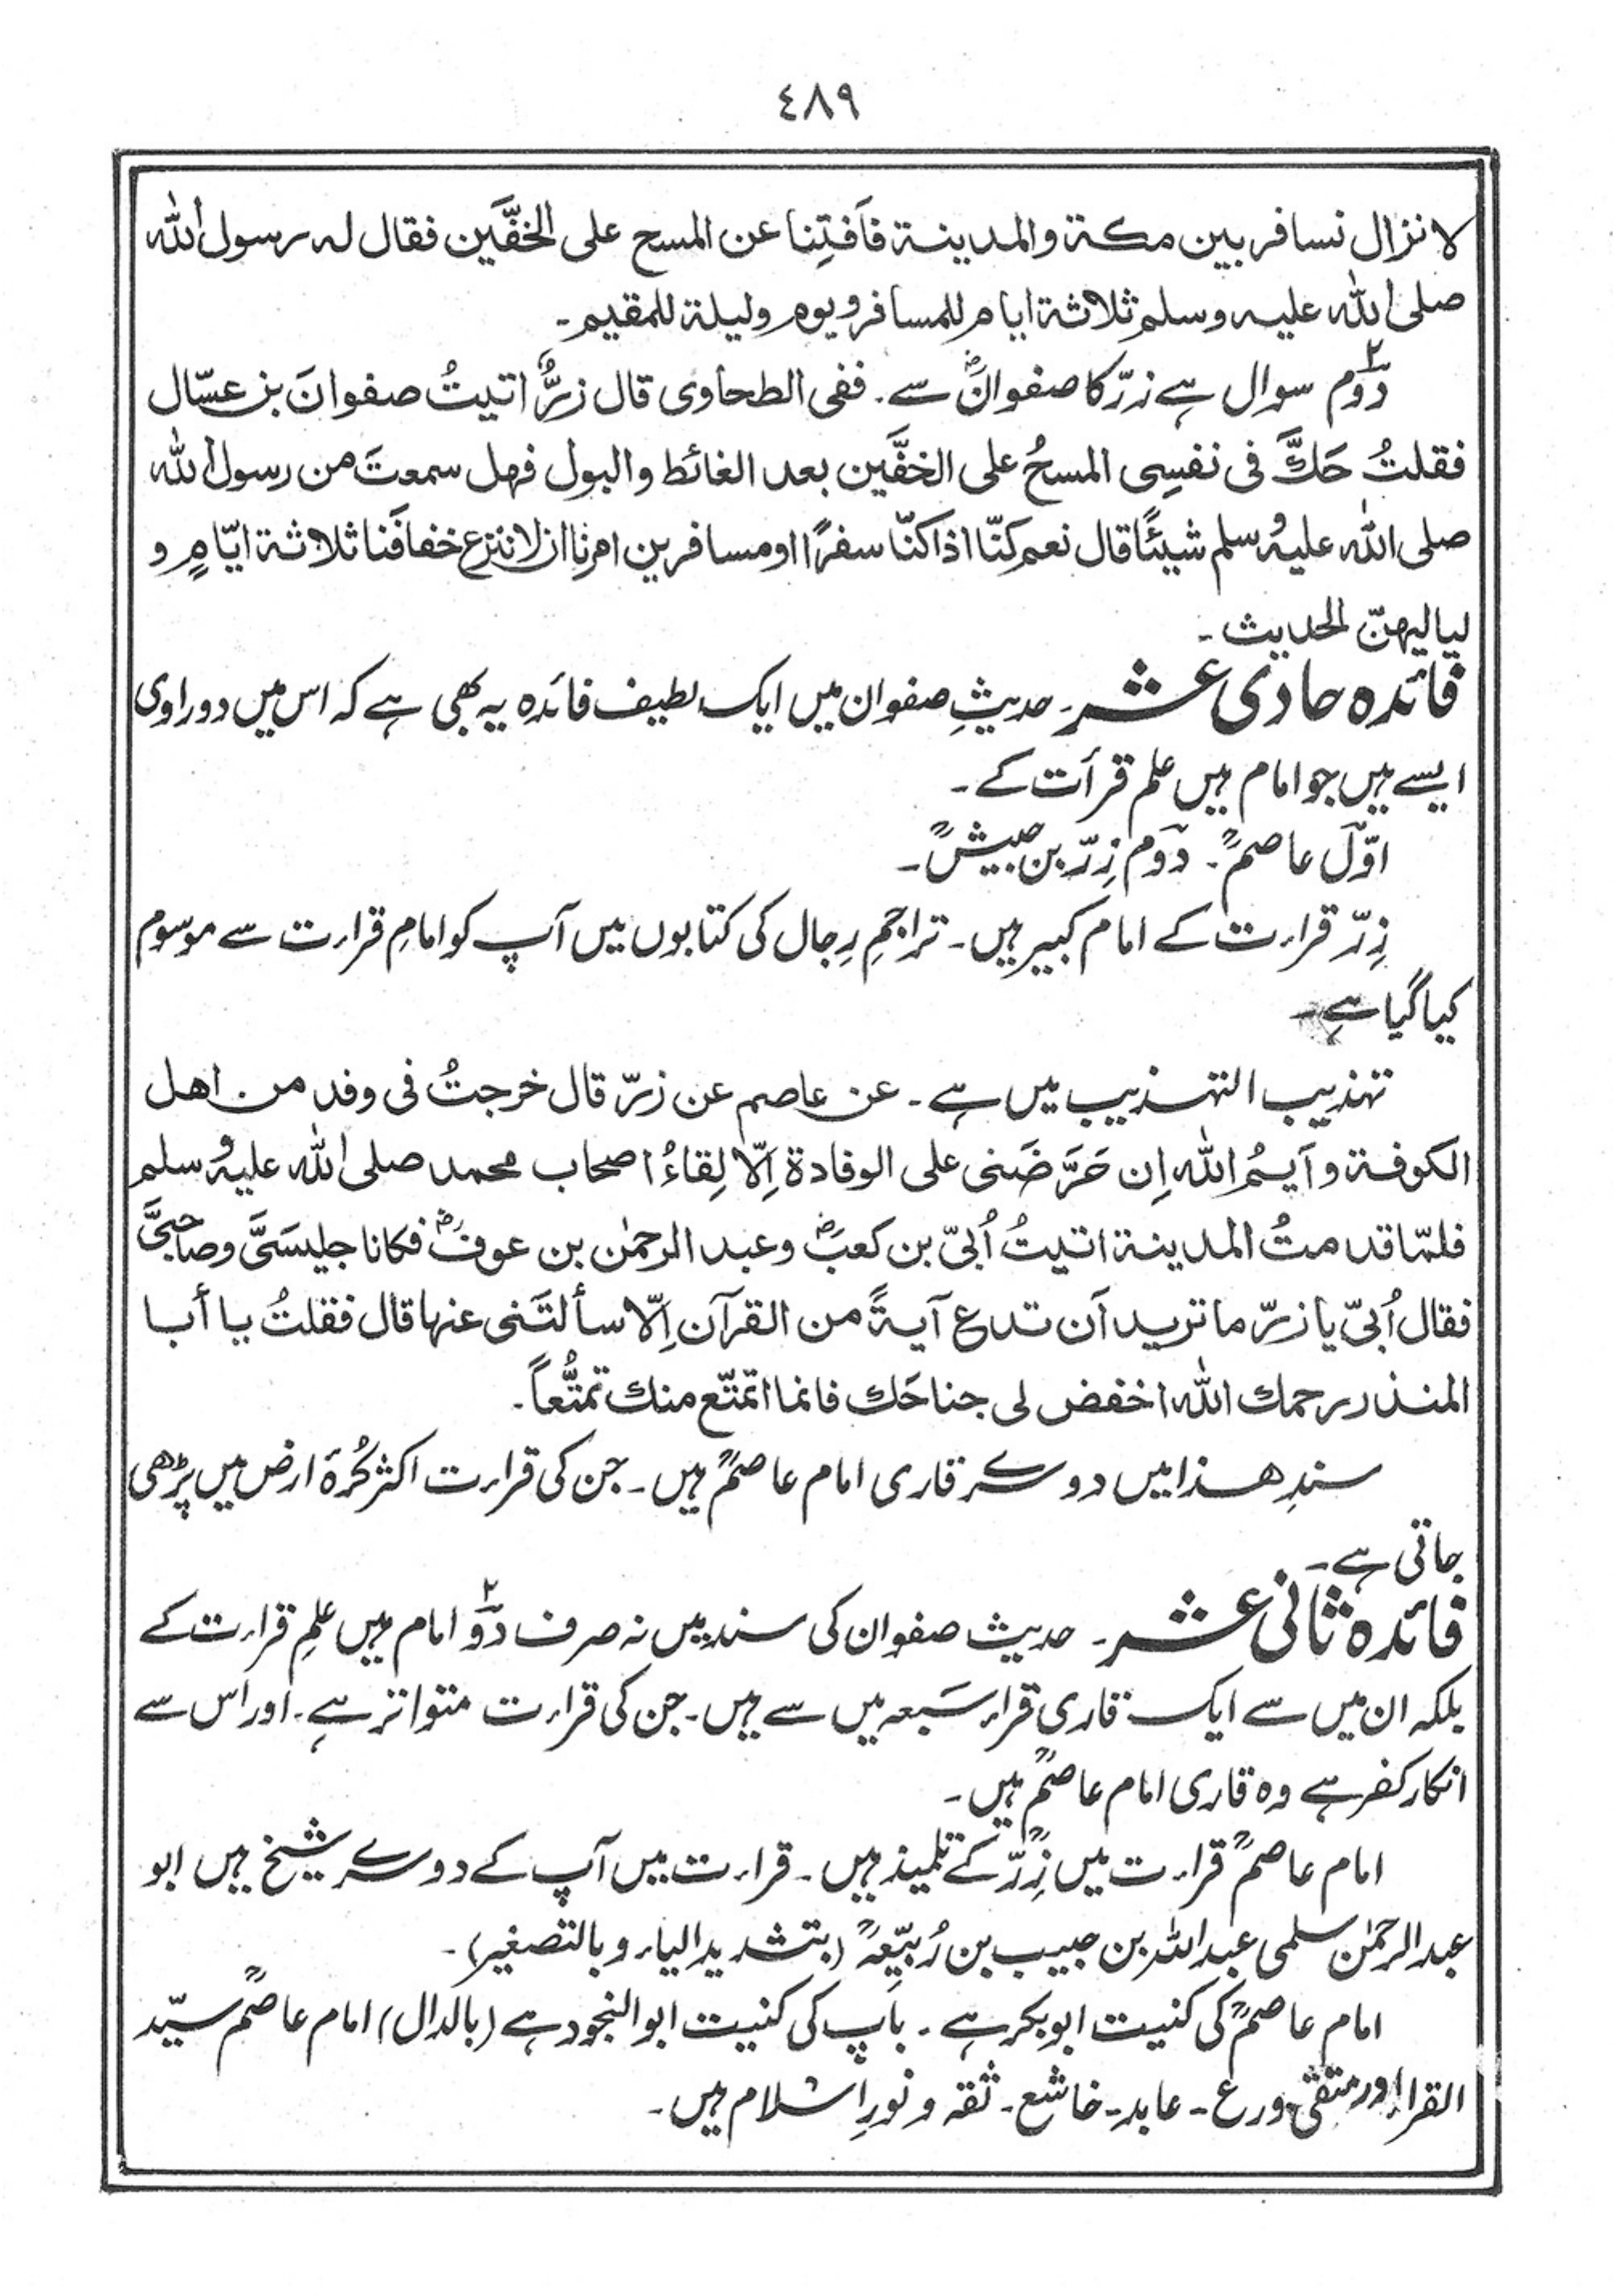 ٤٨٩
لا نزال نسافر بین مکة والمدینة فاَفتِنا عن المسح علی الخفَّین فقال له رسول الله
صلی الله علیه وسلم ثلاثة ایام للمسافر ویوم ولیلة للمقیم۔
دوّم سوال ہے زرّ کا صفوانؓ سے۔ ففی الطحاوی قال زرٌّ اتیتُ صفوانَ بن عسّال
فقلتُ حَكَّ فی نفسِی المسحُ علی الخفَّین بعد الغائط والبول فهل سمعتَ من رسول الله
صلی الله علیه وسلم شیئًا قال نعم کنّا اذا کنّا سفرًا او مسافرین امرنا ان لا ننزع خفافَنا ثلاثة ایّامٍ و
لیالیهنّ الحدیث۔
فائدہ حادی عشر۔ حدیثِ صفوان میں ایک لطیف فائدہ یہ بھی ہے کہ اس میں دو راوی
ایسے ہیں جو امام ہیں علم قرأت کے۔
اوّل عاصمؒ۔ دوم زِرّ بن حبیشؒ۔
زِرّ قراءت کے امام کبیر ہیں۔ تراجمِ رِجال کی کتابوں میں آپ کو امامِ قراءت سے موسوم
کیا گیا ہے۔
تہذیب التہذیب میں ہے۔ عن عاصم عن زرّ قال خرجتُ فی وفد من اهل
الکوفة و اَیمُ الله اِن حَرَّضَنی علی الوفادة اِلّا لِقاءُ اصحاب محمد صلی الله علیه وسلم
فلمّا قدمتُ المدینة اتیتُ اُبیّ بن کعبؓ وعبد الرحمٰن بن عوفؓ فکانا جلیسَیَّ وصاحبَیَّ
فقال اُبیّ یا زرّ ما ترید اَن تدع آیةً من القرآن اِلّا سألتَنی عنها قال فقلتُ یا أبا
المنذر رحمك الله اخفض لی جناحَك فانما اتمتّع منك تمتُّعاً۔
سندِ ھذا میں دوسرے قاری امام عاصمؒ ہیں۔ جن کی قراءت اکثر کُرۂ ارض میں پڑھی
جاتی ہے۔
فائدہ ثانی عشر۔ حدیث صفوان کی سند میں نہ صرف دوّ امام ہیں علمِ قراءت کے
بلکہ ان میں سے ایک قاری قراء سَبعہ میں سے ہیں۔ جن کی قراءت متواتر ہے۔ اور اس سے
انکار کفر ہے وہ قاری امام عاصمؒ ہیں۔
امام عاصمؒ قراءت میں زِرّؒ کے تلمیذ ہیں۔ قراءت میں آپ کے دوسرے شیخ ہیں ابو
عبدالرحمٰن سلمی عبداللہ بن حبیب بن رُبیّعہؒ (بتشدید الیاء و بالتصغیر)۔
امام عاصمؒ کی کنیت ابوبکر ہے۔ باپ کی کنیت ابوالنجود ہے (بالدال) امام عاصمؒ سیّد
القراء اور متقی ورع۔ عابد۔ خاشع۔ ثقہ و نورِ اسلام ہیں۔